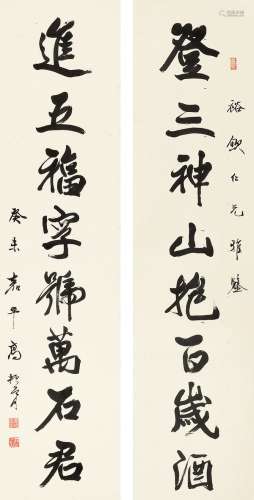 登三神山挹百歲酒
裕
仁兄雅鑒
進五福字號萬石君
癸未嘉平高